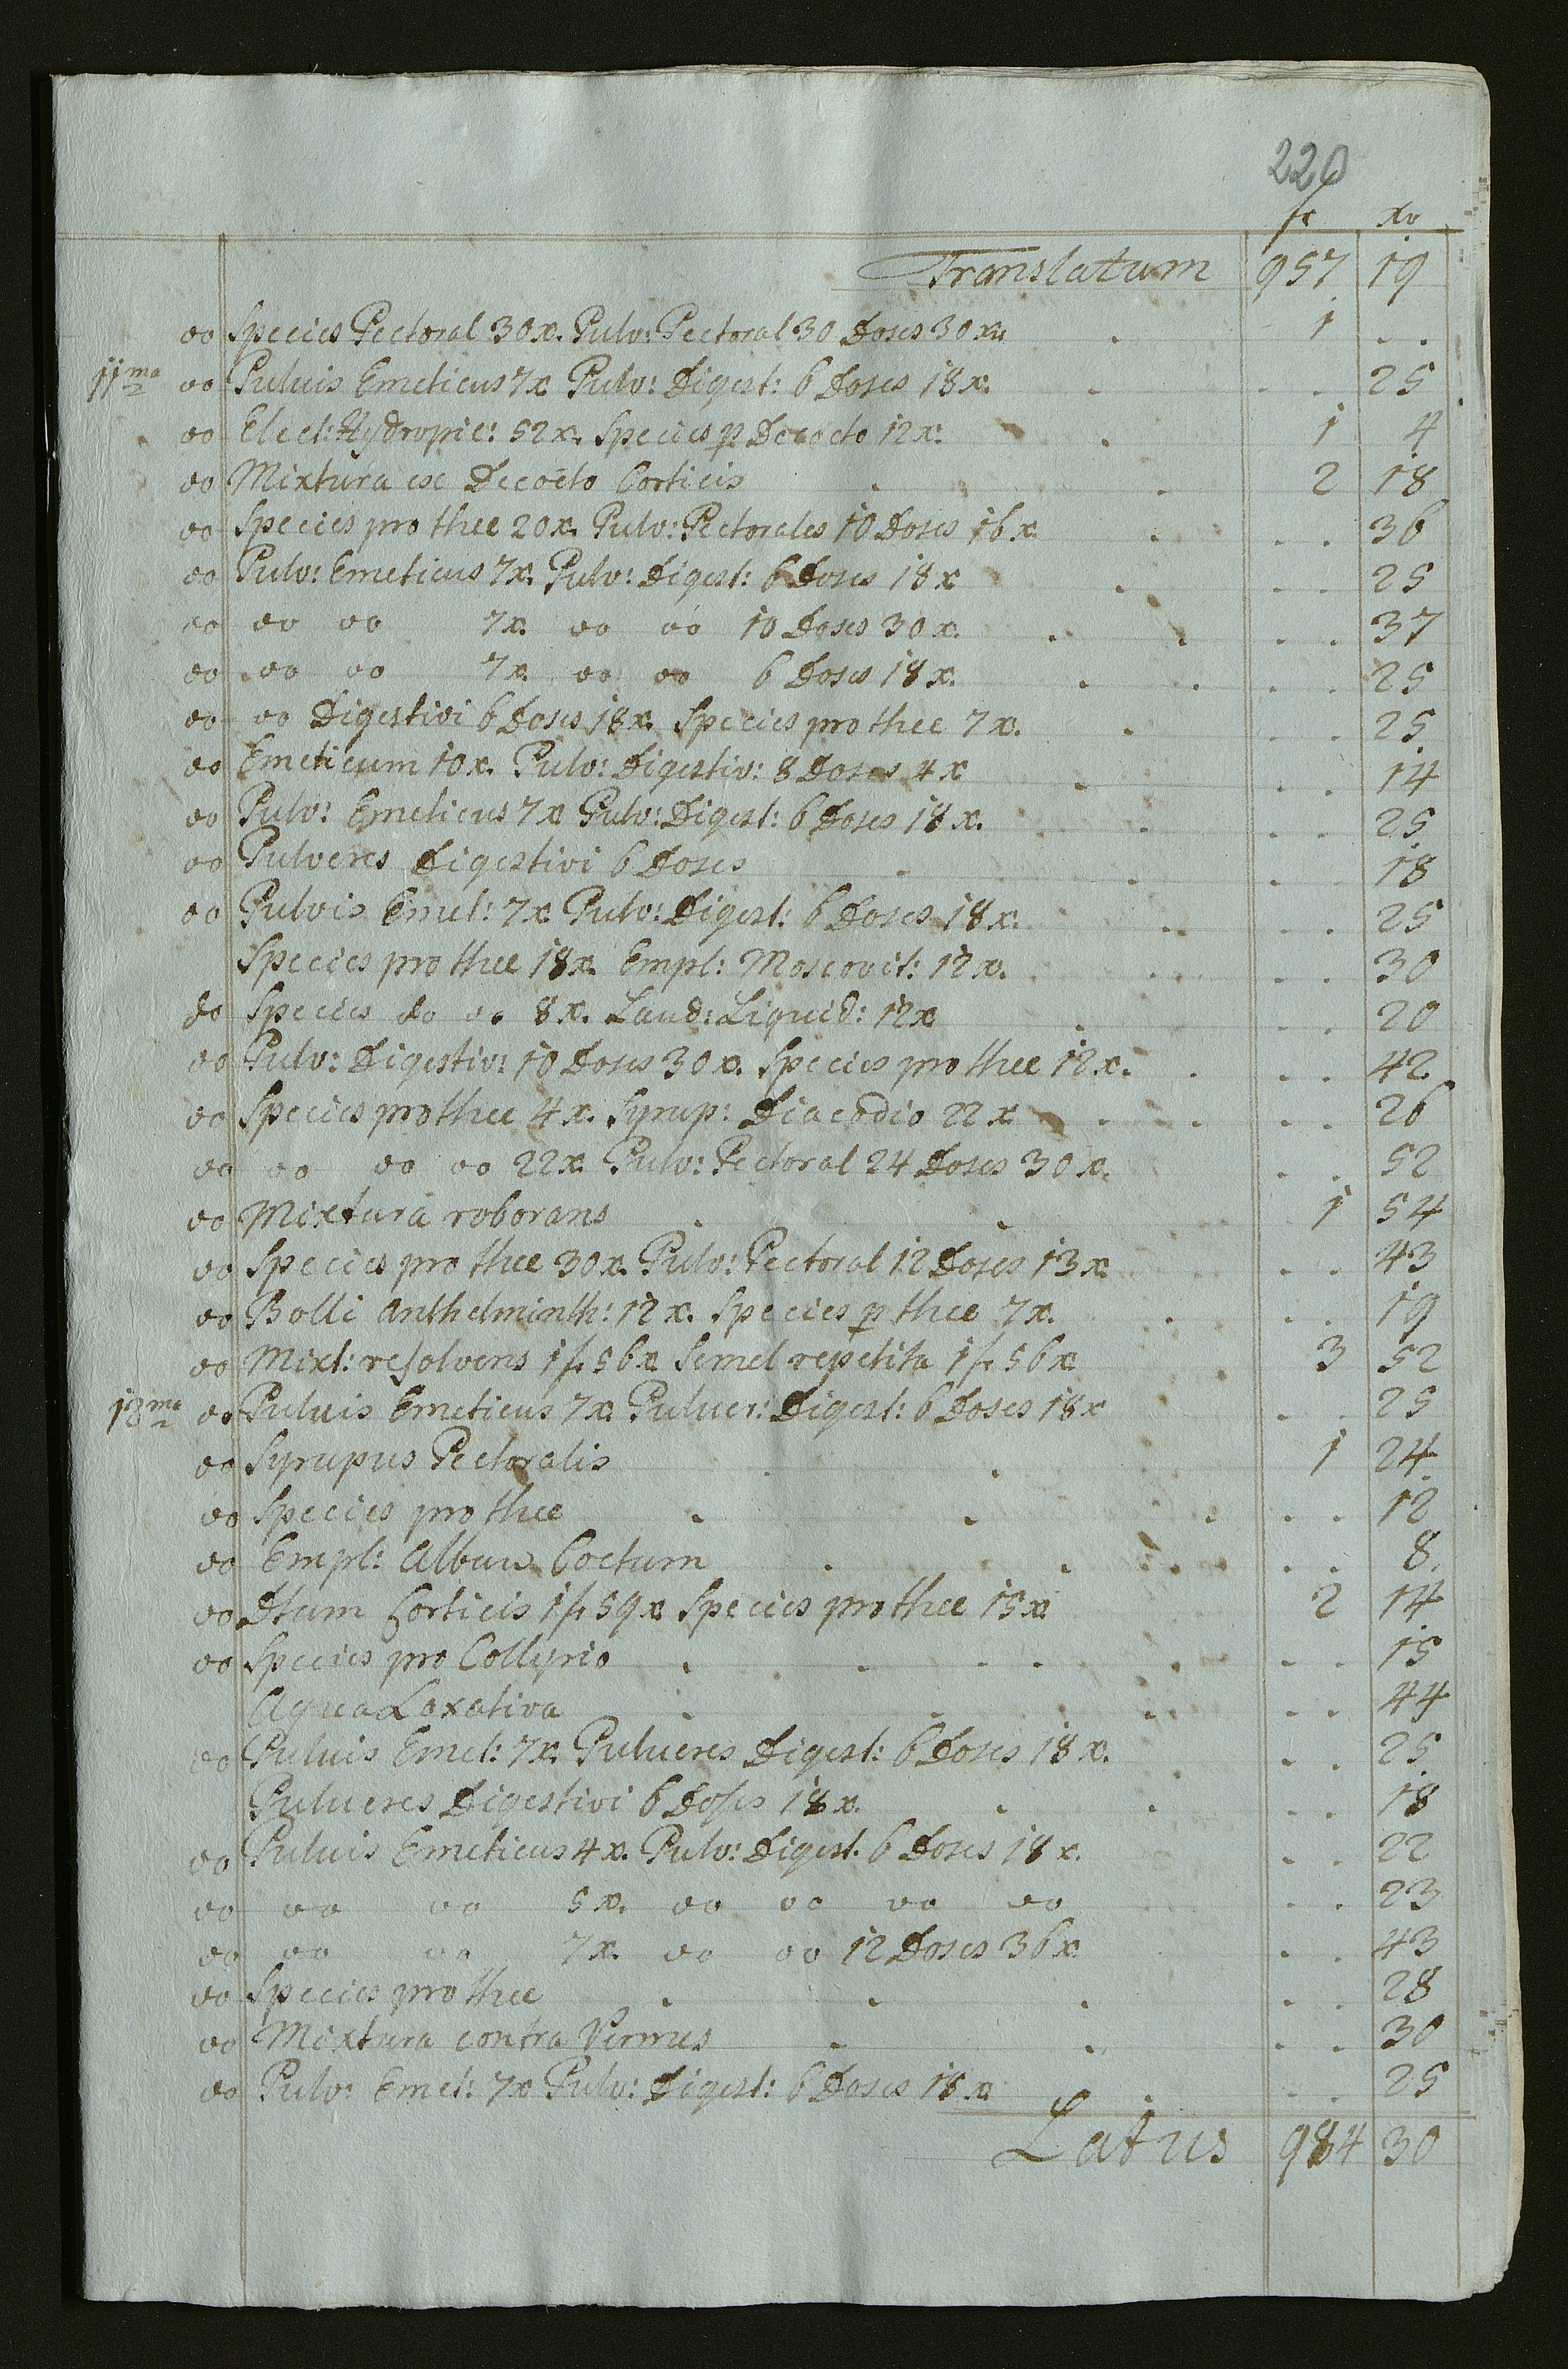 220
fr xr
Translatum 957 19
do Species Pectoral 30x. Pulv: Pectoral 30 Doses 30xr 1 . .
11ma do Puluis Emeticus 7x Pulv: Digest: 6 Doses 18x. . . 25
do Elect: Hydropic: 52x. Species p Decocto 12x. 1 4
do Mixtura ex Decocto Corticis 2 18
do Species pro thee 20x. Pulv: Pectorales 10 Doses 16x . . 36
do Pulv: Emeticus 7x. Pulv: Digest: 6 Doses 18x . . 25
do do do 7x. do do 10 Doses 30x. . . 37
do do do 7x. do do 6 Doses 18x. . . 25
do do Digestivi 6 Doses 18x. Species pro thee 7x. . . 25
do Emeticum 10x. Pulv: Digestiv: 8 Doses 4x . . 14
do Pulv: Emeticus 7x Pulv: Digest: 6 Doses 18x. . . 25
do Pulveres Digestivi 6 Doses . . 18
do Pulvis Emet: 7x Pulv: Digest: 6 Doses 18x. . . 25
Species pro thee 18x. Empl: Moscovit: 12x. . . 30
do Species do do 8x. Laud: Liquid: 12x . . 20
do Pulv: Digestiv: 10 Doses 30x. Species pro thee 12x. . . 42
do Species pro thee 4x. Syrup: Diacodio 22x . . 26
do do do do 22x. Pulv: Pectoral 24 Doses 30x. . . 52
do Mixtura roborans 1 54
do Species pro thee 30x. Pulv: Pectoral 12 Doses 13x . . 43
do Bolli Anthelminth: 12x. Species p thee 7x. . . 19
do Mixt: resolvens 1 fr 56x Semel repetita 1 fr 56x 3 52
13ma do Puluis Emeticus 7x. Puluer: Digest: 6 Doses 18x . . 25
do Syrupus Pectoralis 1 24
do Species pro thee . . 12
do Empl: Album Coctum . . 8.
do Dtum Corticis 1 fr 59x Species pro thee 15x 2 14
do Species pro Collyrio . . 15
Aqua Laxativa . . 44
do Puluis Emet: 7x. Pulueres Digest: 6 Doses 18x. . . 25
Pulueres Digestivi 6 Doses 18x. . . 18
do Puluis Emeticus 4x. Pulv: Digest. 6 Doses 18x. . . 22
do do do 5x. do do do do . . 23
do do do 7x. do do 12 Doses 36x . . 43
do Species pro thee . . 28
do Mixtura contra Vermes . . 30
do Pulv: Emet: 7x Pulv: Digest: 6 Doses 18x . . 25
Latus 984 30